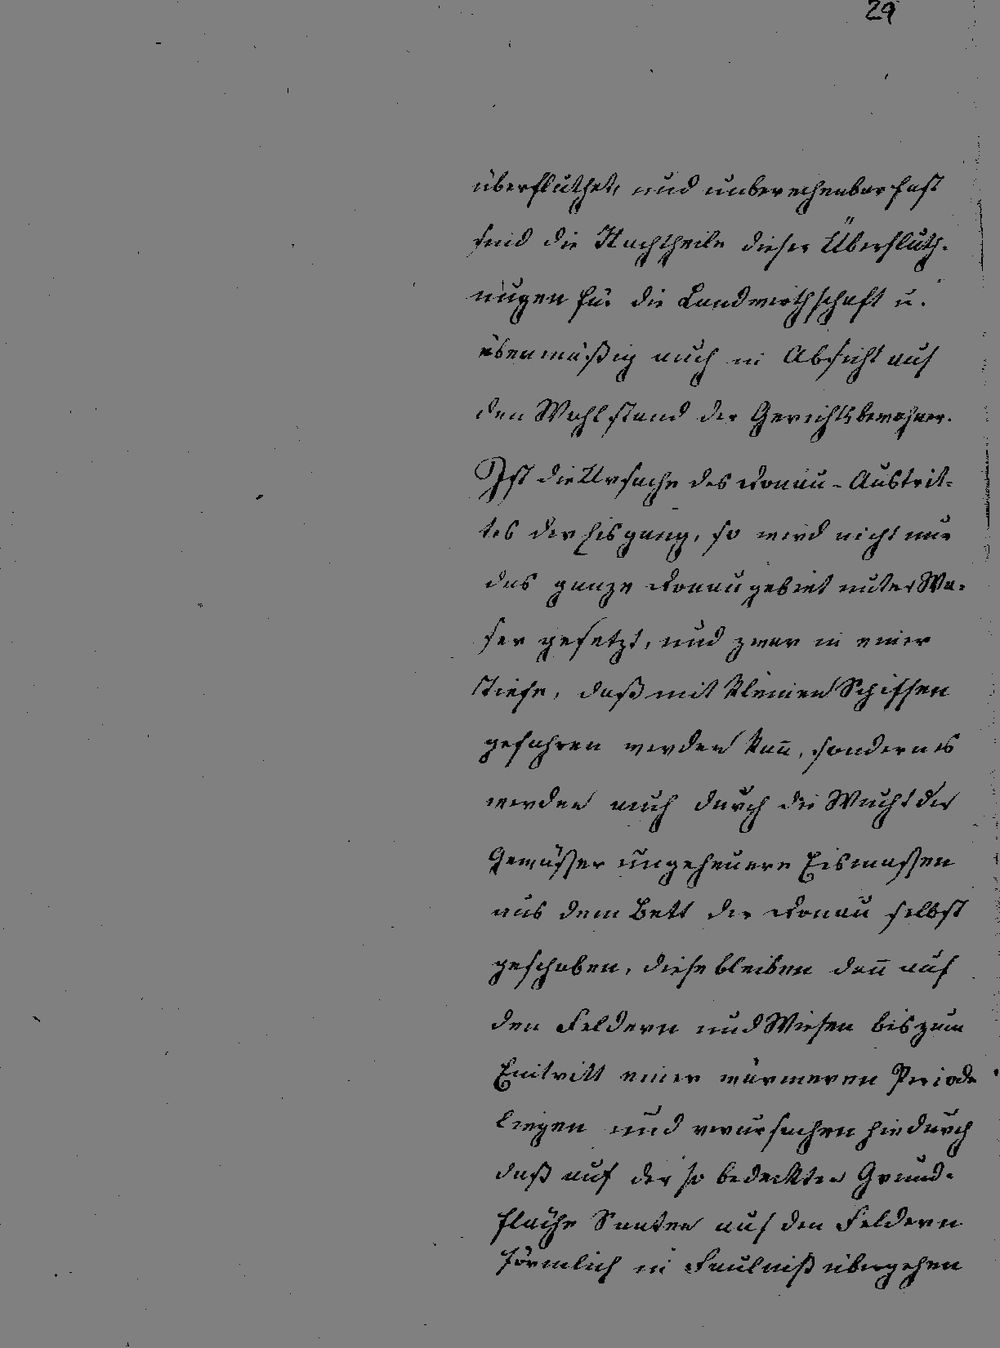 29
überfluthet, und unberechenbar fast
sind die Nachtheile dieser Überfluth-
ungen für die Landwirthschaft u.
ebenmäßig auch in Absicht auf
den Wohlstand der Gerichtsbewohner.
Ist die Ursache des Donau-Austrit-
tes der Eisgang, so wird nicht nur
das ganze Donaugebiet unter Wa-
ser gesetzt, und zwar in einer
Tiefe, daß mit kleinen Schiffen
gefahren werden kan̄, sondern es
werden auch durch die Wucht der
Gewässer ungeheuere Eismassen
aus dem Bett der Donau selbst
geschoben, diese bleiben dan̄ auf
den Feldern und Wiesen bis zum
Eintritt einer wärmeren Periode
liegen und verursachen hiedurch
daß auf der so bedeckten Grund-
fläche Saaten auf den Feldern
förmlich in Faulniß übergehen